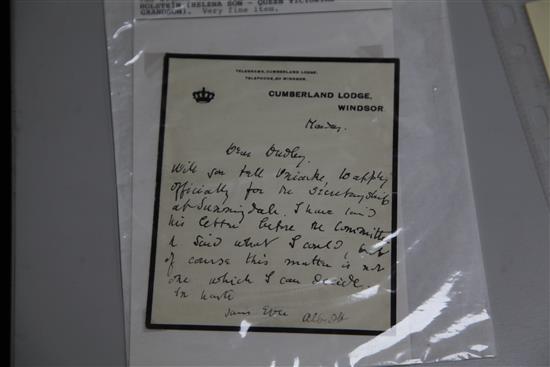 HOLSTEIN (HELENA SON - QUEEN VICTORIAS
GRANDSON). Very fine item.
TELEGRAMS, CUMBERLAND LODGE.
WINDSOR.
CUMBERLAND LODGE,
WINDSOR
Monday.
Dear Dudley,
Will you tell to apply
officially for the Secretaryship
at Sunningdale. I have laid
his letter before the Committee
& said what I could, but
of course this matter is not
one which I can decide.
In haste
Yours Ever Albert